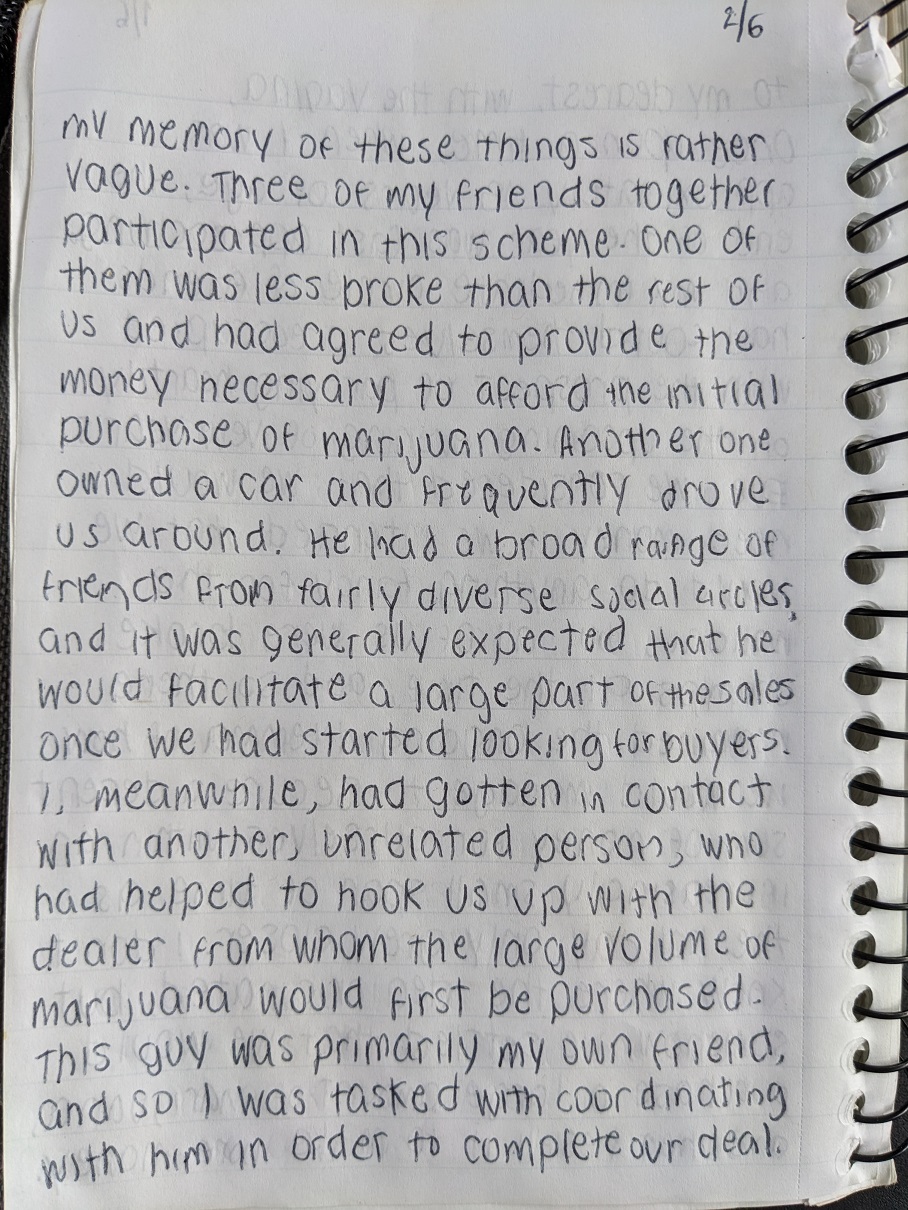 2/6
my memory of these things is rather
vague. Three of my friends together
participated in this scheme. One of
them was less broke than the rest of
us and had agreed to provide the
money necessary to afford the initial
purchase of marijuana. Another one
owned a car and frequently drove
us around. He had a broad range of
friends from fairly diverse social circles,
and it was generally expected that he
would facilitate a large part of the sales
once we had started looking for buyers.
I, meanwhile, had gotten in contact
with another, unrelated person, who
had helped to hook us up with the
dealer from whom the large volume of
marijuana would first be purchased.
This guy was primarily my own friend,
and so I was tasked with coordinating
with him in order to complete our deal.